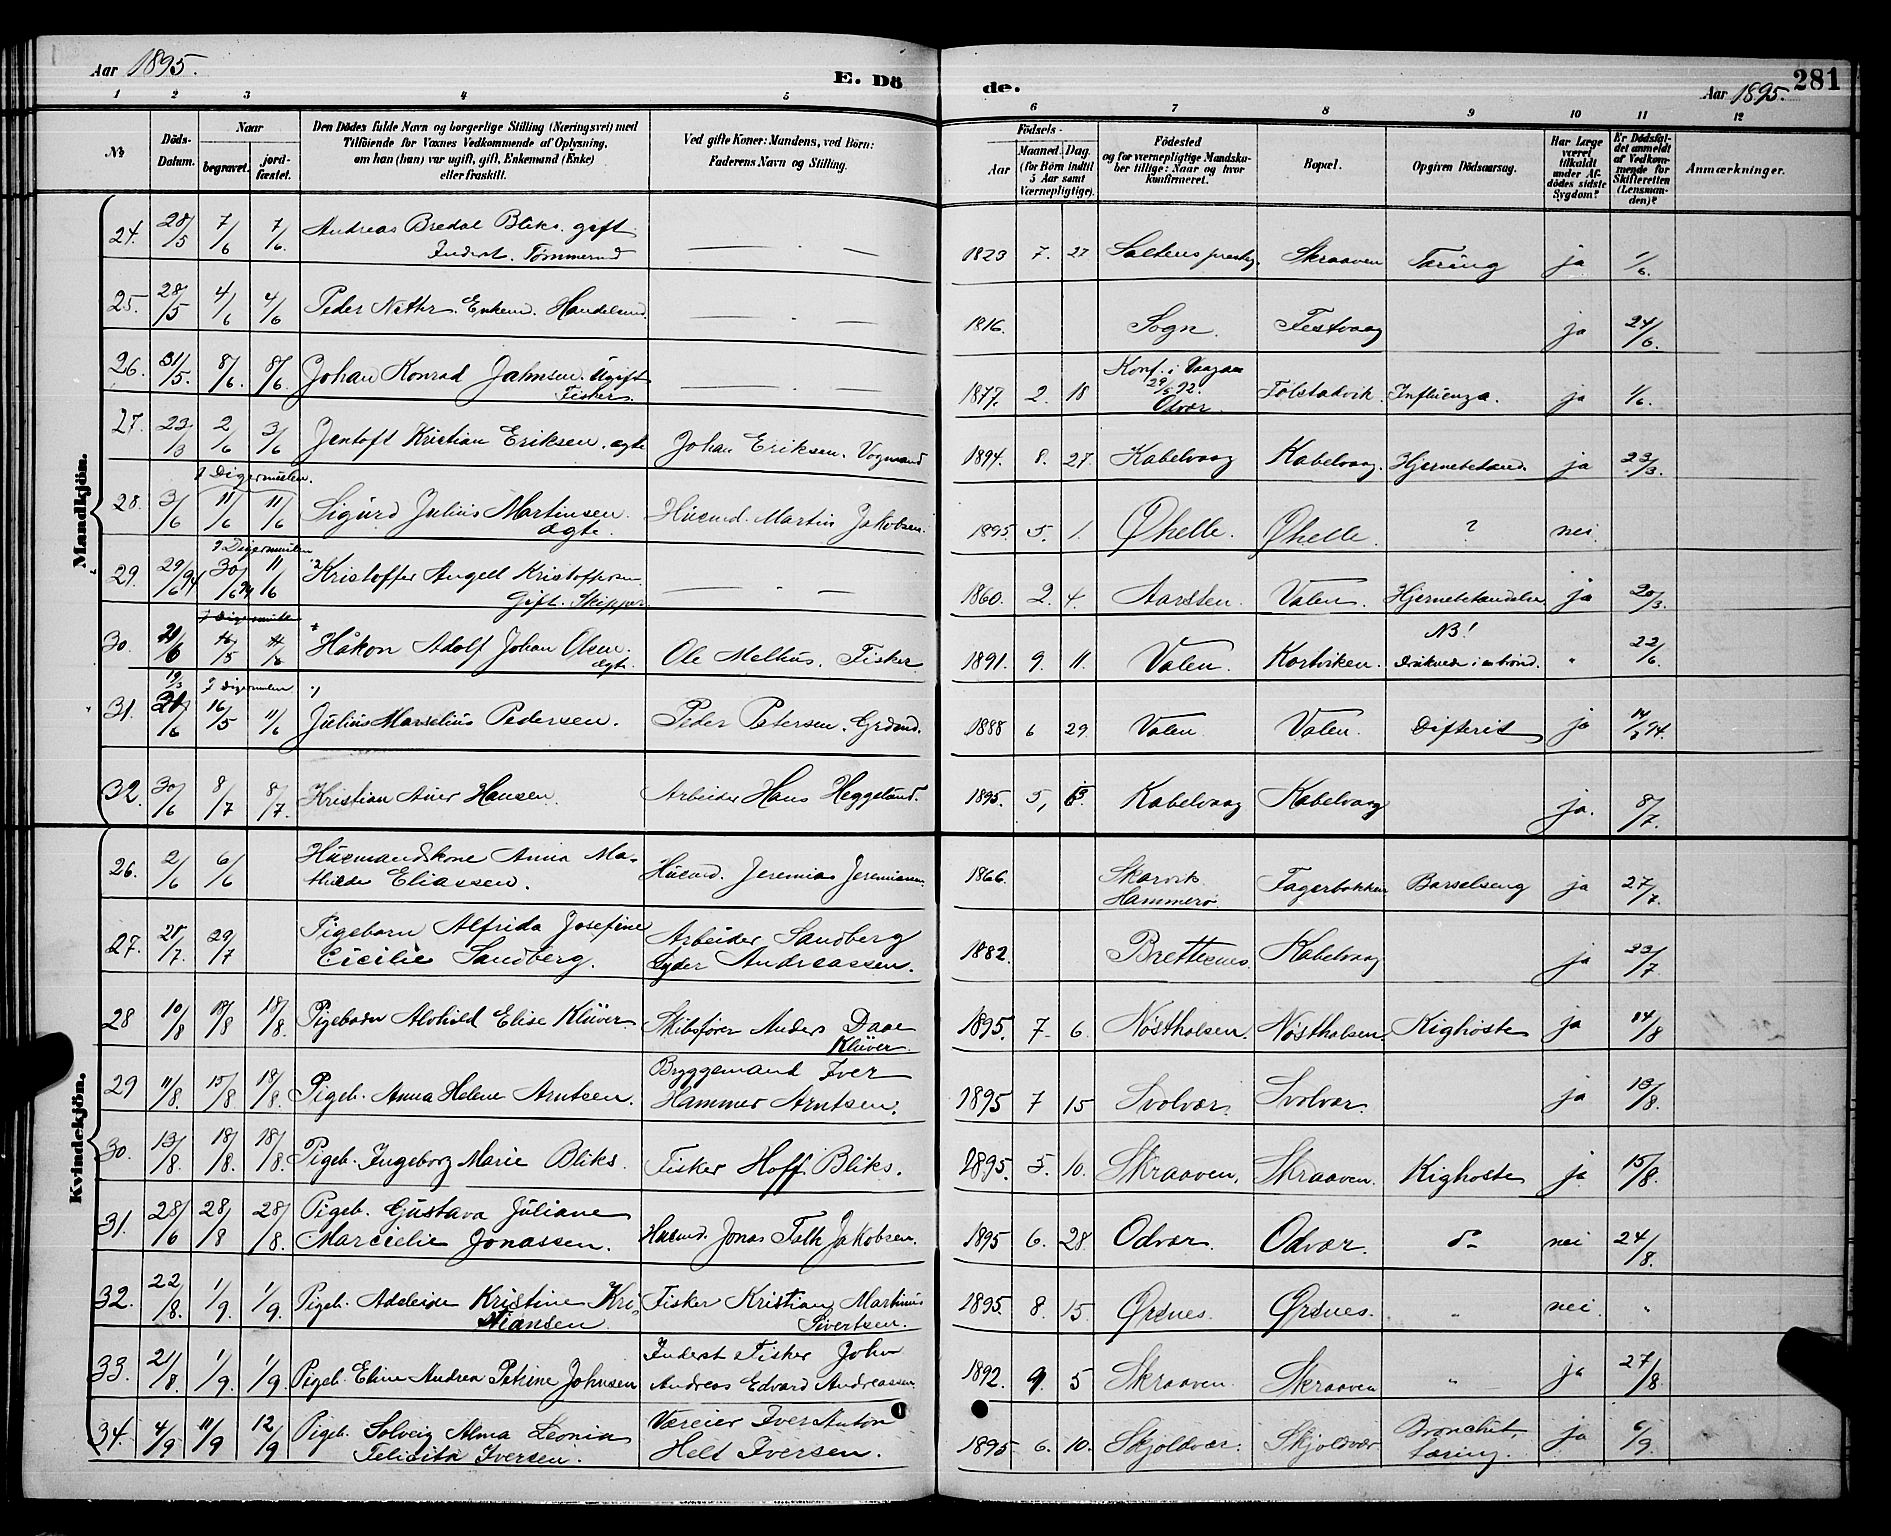 Aar 1895.
E. Dö
de.
Aar 1895.
281
1 2 3 4 5 6 7 8 9 10 11 12
№
Döds-Datum.
Naar
begravet.
jord-fæstet.
Den Dödes fulde Navn og borgerlige Stilling (Næringsvei) med
Tilföiende for Voxnes Vedkommende af Oplysning,
om han (hun) var ugift, gift, Enkemand (Enke)
eller fraskilt.
Ved gifte Koner: Mandens, ved Börn:
Faderens Navn og Stilling.
Födsels-
Aar
Maaned. Dag.
(for Börn indtil
5 Aar samt
Værnepligtige).
Födested
og for værnepligtige Mandska-
ber tillige: Naar og hvor
konfirmeret.
Bopæl.
Opgiven Dödsaarsag.
Har Læge
været
tilkaldt
under Af-
dödes sidste
Sygdom?
Er Dödsfal-
det anmeldt
af Vedkom-
mende for
Skifteretten
(Lensman-
den)?
Anmærkninger.
Mandkjön.
24. 28/5 7/6 7/6. Andreas Bredal Bliks. gift
Inderst. Tømmermd
1823 7. 27 Saltens prestg. Skraaven Tæring ja 1/6.
25. 28/5 4/6 4/6 Peder Nethr. Enkem. Handelsmd.
1816. Sogn. Festvaag ja 24/6.
26. 31/5. 8/6. 8/6. Johan Konrad Jahnsen. Ugift
Fisker.
1877. 2. 18 Konf. i Vaagan
29/5 92.
Odvær. Følstadvik. Influenza. ja 1/6.
27. 23/3 2/6 3/6 Jentoft Kristian Eriksen. ægte Johan Eriksen. Vogmand
1894. 8. 27. Kabelvaag Kabelvaag. Hjernebetænd. ja 23/3.
I Digermulen.
28. 3/6 11/6 11/6 Sigurd Julius Martinsen.
ægte. Husmd. Martin Jakobsen.
1895 5. 1. Øhelle. Øhelle. ? nei
I Digermulen
29. 29/6 94 30/6 94 11/6 Kristoffer Angell Kristoffersen
Gift. Skipper.
1860. 2. 4. Aarsten. Valen. Hjernebetændelse ja 20/3.
I Digermulen
30. 21/6 Håkon Adolf Johan Olsen.
ægte. Ole Melhus. Fisker
1891. 9. 11. Valen. Kortviken. NB!
Druknede i en brønd. " 22/6.
19/3 I Digermulen
31. 21/6 16/5 11/6 Julius Marselius Pedersen. Peder Petersen. Grdmd.
1888 6 29 Valen Valen. Difterit ja 14/3 94.
32. 30/6 8/7 8/7. Kristian Aner Hansen. Arbeider Hans Heggelund.
1895. 5, Kabelvaag Kabelvaag ja. 8/7.
Kvindekjön.
26. 2/6 6/6 Husmandskone Anna Ma-
thilde Eliassen. Husmd. Jeremias Jeremiasen.
1866. Skarvik
Hammerø. Fagerbakken Barselseng ja 27/7.
27. 28/7. 29/7 Pigebarn Alfrida Josefine
Cicilie Sandberg. Arbeider Sandberg
Lyder Andreassen.
1882. Brettesnes. Kabelvaag ja 23/7
28 10/8 18/8 18/8. Pigebarn Alvhild Elise Klüver Skibsfører Anders Daae
Klüver.
1895. 7. 6. Nøstholsen. Nøstholsen. Kighoste ja 14/8
29 11/8. 15/8 18/8. Pigeb. Anna Helene Arntsen. Bryggemand Iver
Hammer Arntsen.
1895 7 15 Svolvær. Svolvær. ja 13/8.
30. 13/8. 18/8. 18/8. Pigeb. Ingeborg Marie Bliks. Fisker Hoff Bliks.
1895. 5. 10. Skraaven. Skraaven. Kighoste ja 15/8.
31. 28/6 28/8 28/8. Pigeb. Gustava Juliane
Marcielie Jonassen. Husmd. Jonas Falk Jakobsen.
1895 6. 28. Odvær. Odvær. do nei 24/8.
32. 22/8. 1/9. 1/9. Pigeb. Adeleide Kristine Kri-
stiansen. Fisker Kristian Martinus
Sivertsen.
1895. 8. 15. Ørsnes. Ørsnes. " nei. "
33. 21/8. 1/9. 1/9 Pigeb. Eline Andrea Petrine Johnsen Inderst Fisker John
Andreas Edvard Andreassen.
1892. 9. 5 Skraaven. Skraaven " ja 27/8.
34. 4/9 11/9 12/9 Pigeb. Solveig Alma Leonia
Felicita Iversen. Væreier Iver Anton
Helt Iversen.
1895. 6. 10. Skjoldvær. Skjoldvær Bronchit,
tæring. ja 6/9.